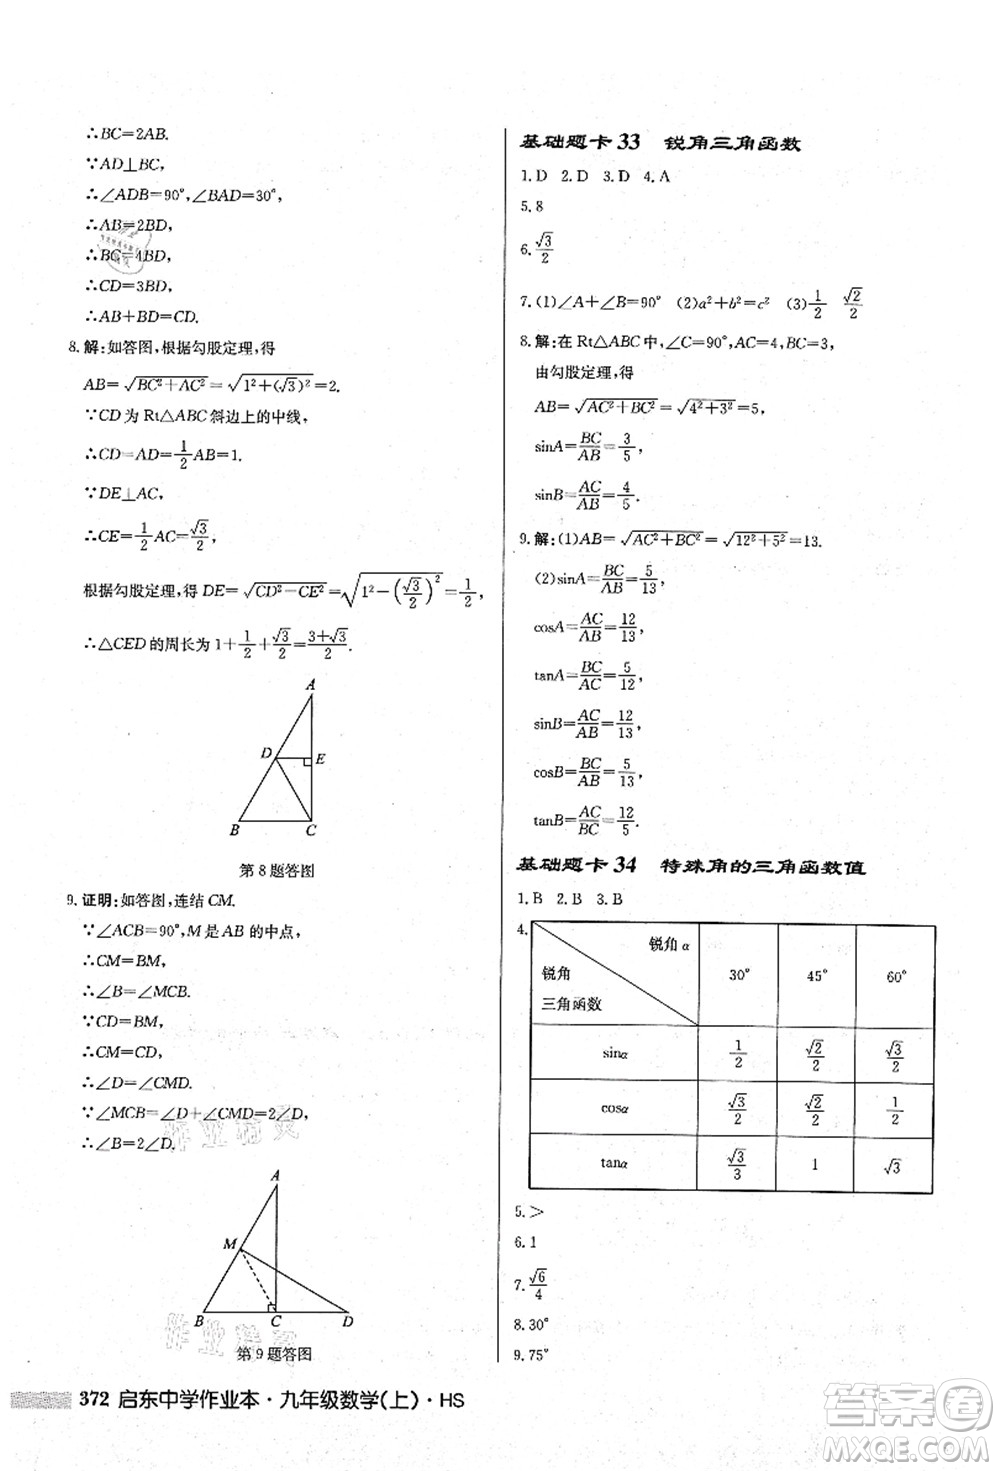 ∴BC=2AB.
∵AD⊥BC,
∴∠ADB=90°,∠BAD=30°,
∴AB=2BD,
∴BC=4BD,
∴CD=3BD,
∴AB+BD=CD.
8.解:如答图,根据勾股定理,得
AB=√(BC²+AC²)=√(1²+(√3)²)=2.
∵CD为Rt△ABC斜边上的中线,
∴CD=AD=1/2AB=1.
∵DE⊥AC,
∴CE=1/2AC=√3/2.
根据勾股定理,得DE=√(CD²-CE²)=√(1²-(√3/2)²)=1/2,
∴△CED的周长为1+1/2+√3/2=(3+√3)/2.
A
D
E
B
C
第8题答图
9.证明:如答图,连结CM.
∵∠ACB=90°,M是AB的中点,
∴CM=BM,
∴∠B=∠MCB.
∵CD=BM,
∴CM=CD,
∴∠D=∠CMD.
∵∠MCB=∠D+∠CMD=2∠D,
∴∠B=2∠D.
A
M
B
C
D
第9题答图
基础题卡33 锐角三角函数
1.D 2.D 3.D 4.A
5.8
6.√3/2
7.(1)∠A+∠B=90° (2)a²+b²=c² (3)1/2 √2/2
8.解:在Rt△ABC中,∠C=90°,AC=4,BC=3,
由勾股定理,得
AB=√(AC²+BC²)=√(4²+3²)=5,
sinA=BC/AB=3/5,
sinB=AC/AB=4/5.
9.解:(1)AB=√(AC²+BC²)=√(12²+5²)=13.
(2)sinA=BC/AB=5/13,
cosA=AC/AB=12/13,
tanA=BC/AC=5/12,
sinB=AC/AB=12/13,
cosB=BC/AB=5/13,
tanB=AC/BC=12/5.
基础题卡34 特殊角的三角函数值
1.B 2.B 3.B
4.
锐角α
锐角
三角函数
30° 45° 60°
sinα 1/2 √2/2 √3/2
cosα √3/2 √2/2 1/2
tanα √3/3 1 √3
5.>
6.1
7.√6/4
8.30°
9.75°
372 启东中学作业本·九年级数学(上)·HS
答案圈
MXQE.COM